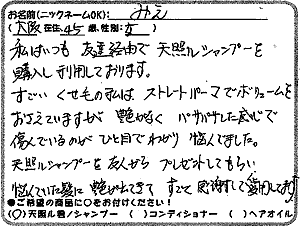 お名前(ニックネームOK): みえ
(大阪在住、45歳、性別:女)
私はいつも友達経由で天照ルシャンプーを
購入し利用しております。
すごいくせ毛の私は、ストレートパーマでボリュームを
おさえていますが艶がなくパサパサした感じで
傷んでいるのがひと目でわかり悩んでました。
天照ルシャンプーを友人からプレゼントしてもらい
悩んでいた髪に艶が出てきてすごく感謝して愛用してます
●ご希望の商品に○をお付けください!
(○)天照ル君/シャンプー ( )コンディショナー ( )ヘアオイル